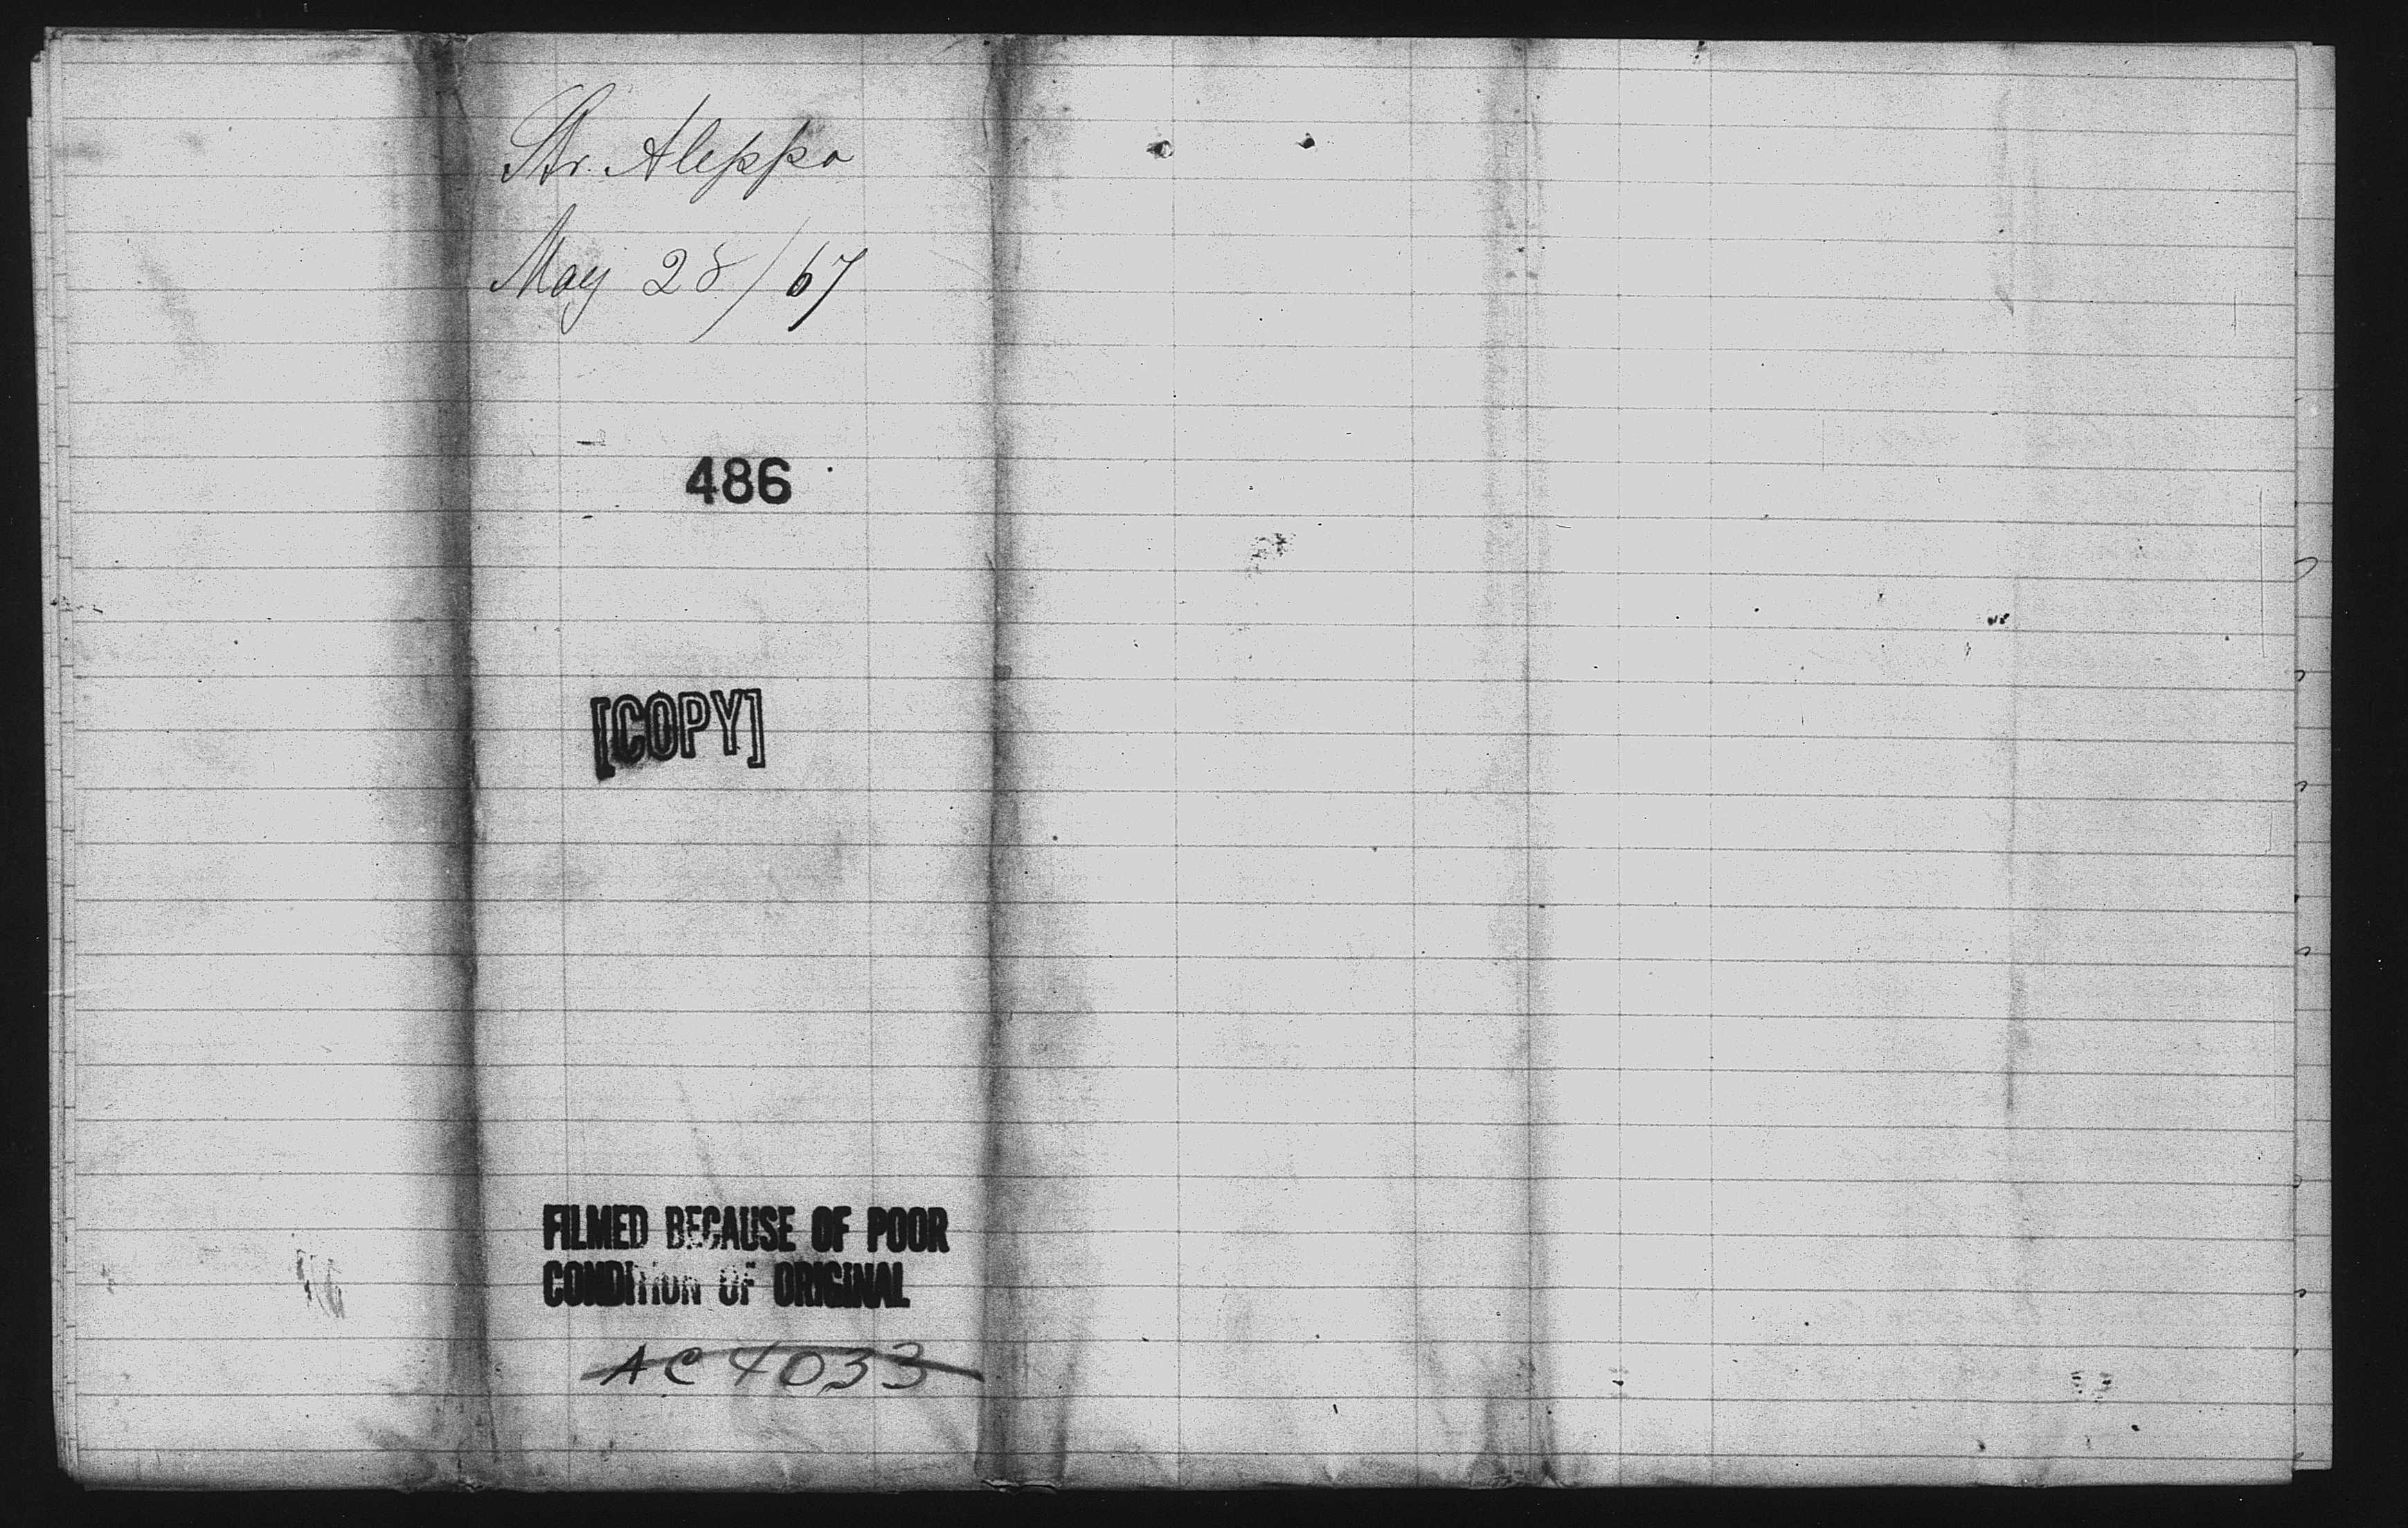 Str. Aleppo
May 28/67
486
[COPY]
FILMED BECAUSE OF POOR
CONDITION OF ORIGINAL
AC 4033